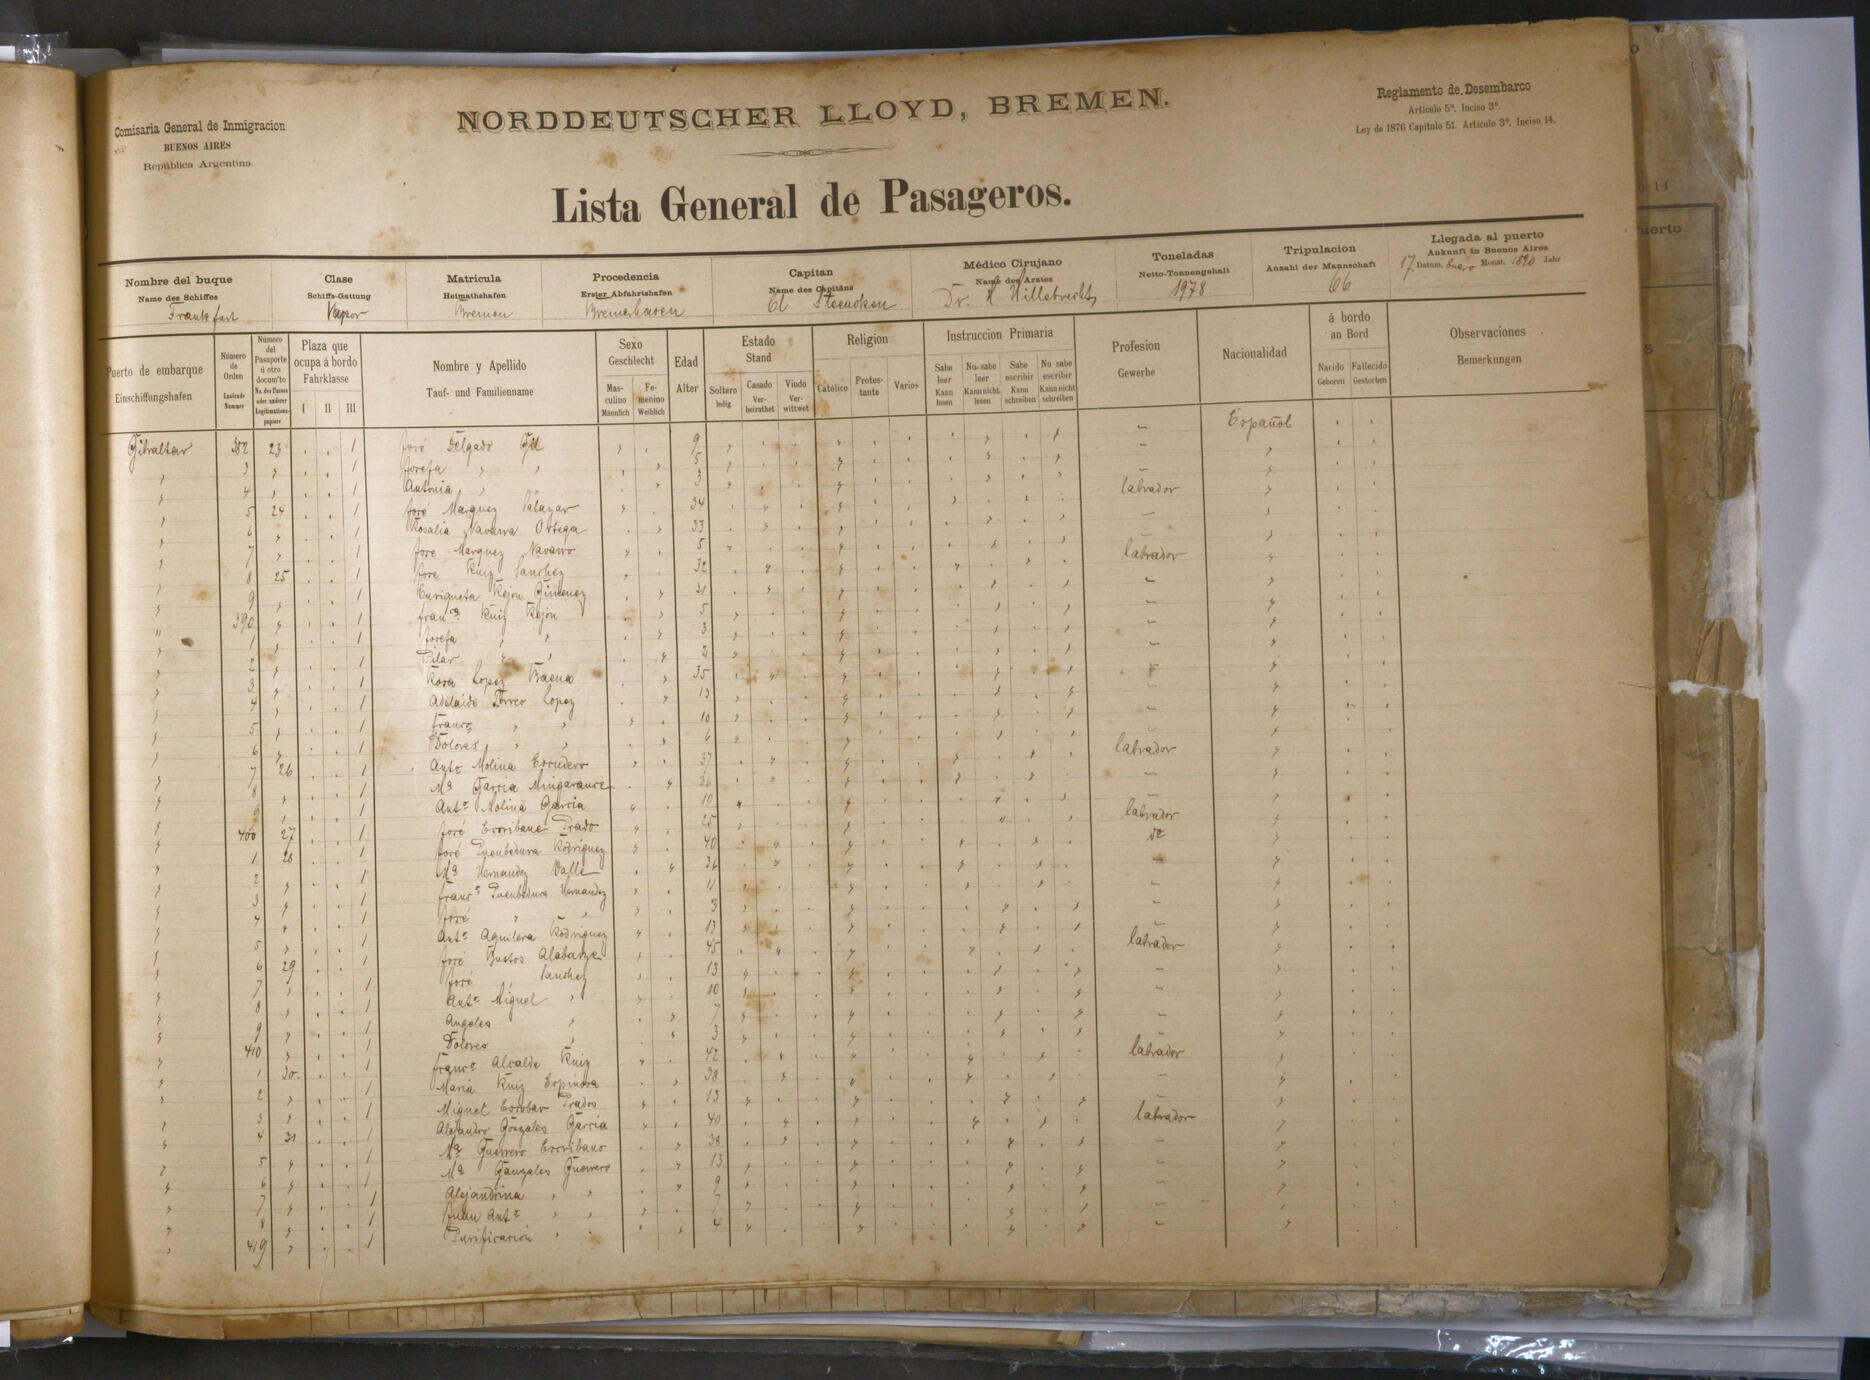 Comisaria General de Inmigracion
BUENOS AIRES
República Argentina.
NORDDEUTSCHER LLOYD, BREMEN.
Reglamento de Desembarco
Articulo 5º. Inciso 3º.
Ley de 1876 Capitulo 51. Articulo 3º. Inciso 14.
Lista General de Pasageros.
Nombre del buque
Name des Schiffes
Frankfurt
Clase
Schiffs-Gattung
Vapor
Matricula
Heimathshafen
Bremen
Procedencia
Erster Abfahrtshafen
Bremerhaven
Capitan
Name des Capitäns
Médico Cirujano
Name des Arztes
Dr. H Hillebrecht
Toneladas
Netto-Tonnengehalt
1978
Tripulacion
Anzahl der Mannschaft
66
Llegada al puerto
Ankunft in Buenos Aires
17 Datum. Enero Monat. 1890 Jahr
Puerto de embarque
Einschiffungshafen
Número de Orden
Laufende Nummer
Número del Pasaporte ú otro docum'to
No. des Passes oder anderer Legitimations-papiere
Plaza que ocupa á bordo
Fahrklasse
I II III
Nombre y Apellido
Tauf- und Familienname
Sexo
Geschlecht
Mas-culino Männlich
Fe-menino Weiblich
Edad
Alter
Estado
Stand
Soltero ledig
Casado Ver-heirathet
Viudo Ver-wittwet
Religion
Católico
Protes-tante
Varios
Instruccion Primaria
Sabe leer Kann lesen
No sabe leer Kann nicht lesen
Sabe escribir Kann schreiben
No sabe escribir Kann nicht schreiben
Profesion
Gewerbe
Nacionalidad
á bordo
an Bord
Nacido Geboren
Fallecido Gestorben
Observaciones
Bemerkungen
Gibraltar 382 23 1 José Delgado Gil 9 Español
3 1 Josefa 5
4 1 Antonia 3
5 24 1 José Marquez Salazar 34 labrador
6 1 Rosalia Navarro Ortega 33
7 1 Jose Marquez Navarro 5
8 25 1 Jose Ruiz Sanchez 32 labrador
9 1 Enriqueta Rejon Gimenez 31
390 1 Franca Ruiz Rejon 5
1 1 Josefa 3
2 1 Pilar 2
3 1 Rosa Lopez Baena 35
4 1 Adelaida Torres Lopez 13
5 1 Franco 10
6 1 Dolores 6
7 26 1 Anto Molina Escudero 37 labrador
8 1 Ma Garcia 36
9 1 Anto Molina Garcia 10
400 27 1 José Escribano Prado 25 labrador
1 28 1 José Puenbedura Rodriguez 40 do
2 1 Ma Hernandez Valle 36
3 1 Franco Puenbedura Hernandez 11
4 1 José 3
5 1 Anto Aguilera Rodriguez 13
6 29 1 José Bustos 45 labrador
7 1 José Sanchez 13
8 1 Anto Miguel 10
9 1 Angeles 7
410 1 Dolores 3
1 30 1 Franco Alcalde Ruiz 42 labrador
2 1 Maria Ruiz Espinosa 38
3 1 Miguel Escobar Prados 13
4 31 1 Alejandro Gonzales Garcia 40 labrador
5 1 Ma Guerrero Escribano 38
6 1 Ma Gonzales Guerrero 13
7 1 Alejandrina 9
8 1 Juan Anto 7
419 1 Purificacion 4